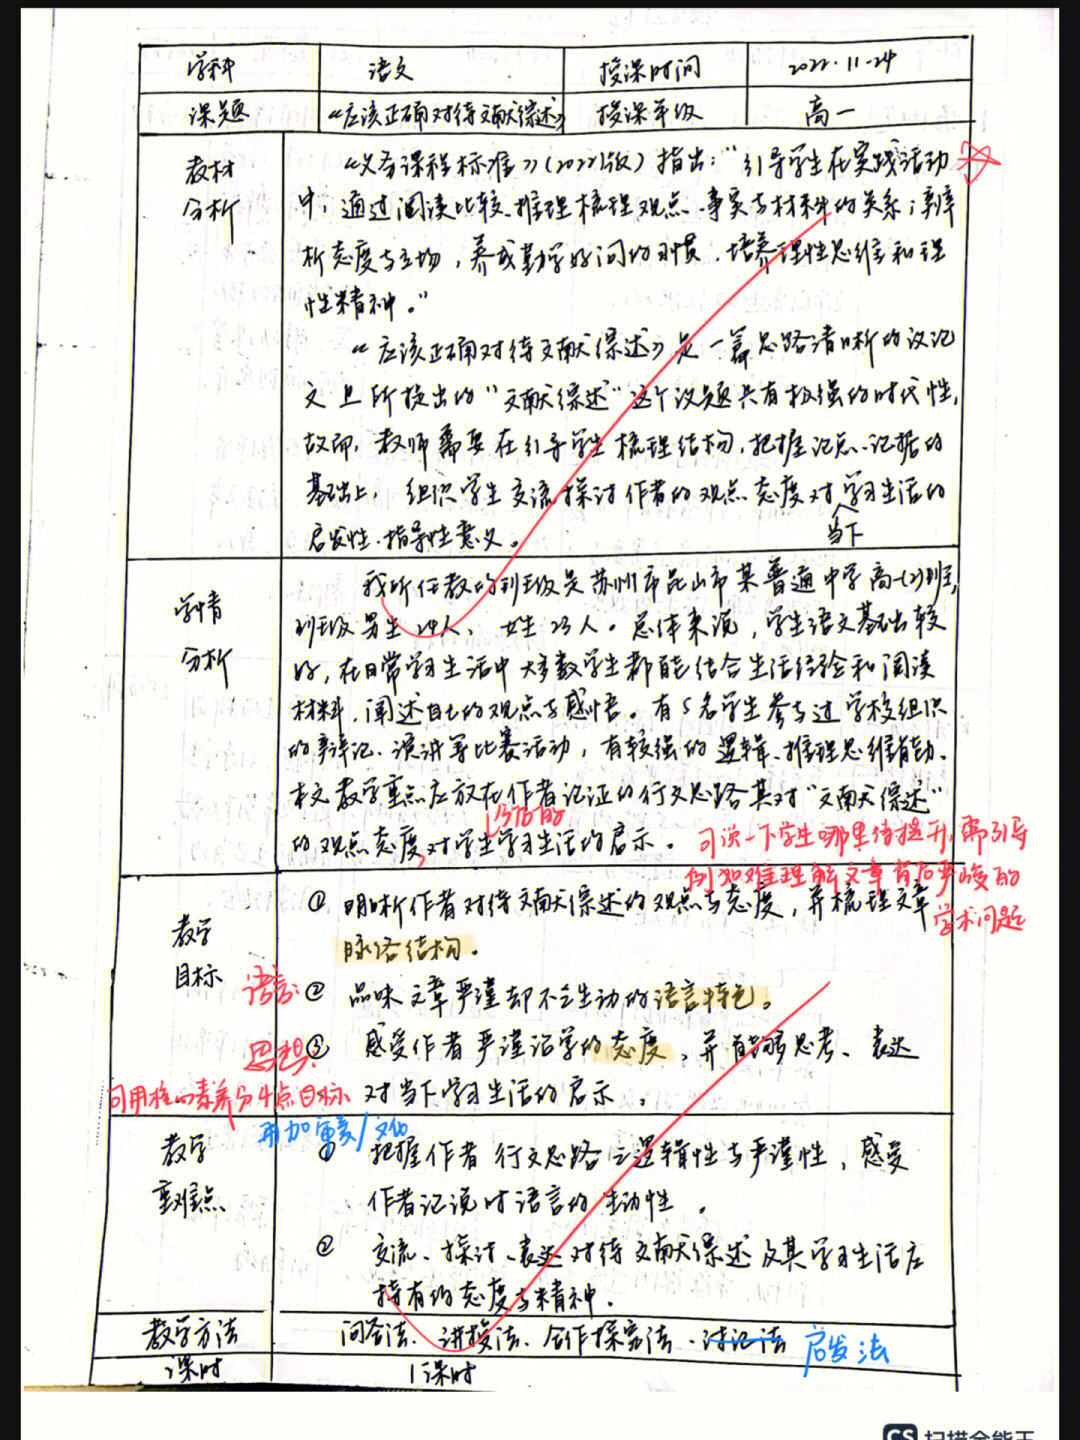 学科 语文 授课时间 2022.11.24
课题 《应该正确对待文献综述》 授课年级 高一
教材 《义务课程标准》(2022版)指出:"引导学生在实践活动
分析 中,通过阅读比较、推理梳理观点、事实与材料的关系;辨
析态度与立场,养成勤学好问的习惯,培养理性思维和理
性精神。"
《应该正确对待文献综述》是一篇思路清晰的议论
文且所提出的"文献综述"这个议题具有极强的时代性,
故而,教师需要在引导学生梳理结构,把握论点、论据的
基础上,组织学生交流探讨作者的观点态度对学习生活的
当下
启发性、指导性意义。
学情 我所任教的班级是苏州市昆山市某普通中学高一(2)班,
班级男生24人,女生23人。总体来说,学生语文基础较
分析 好,在日常学习生活中大多数学生都能结合生活经验和阅读
材料,阐述自己的观点与感悟。有5名学生参与过学校组织
的辩论、演讲等比赛活动,有较强的逻辑、推理思维能力。
本文教学重点应放在作者论证的行文思路其对"文献综述"
的观点态度,对学生学习生活的启示。 可谈一下学生哪里待提升,需引导
例如难理解文章背后严峻的
学术问题
教学 ① 明晰作者对待文献综述的观点与态度,并梳理文章
脉络结构。
目标 语言: ② 品味文章严谨却不乏生动的语言特色。
思想: ③ 感受作者严谨治学的态度,并能够思考、表达
可用核心素养分4点目标 对当下学习生活的启示。
再加审美/文化
教学 ① 把握作者行文思路之逻辑性与严谨性,感受
重难点 作者论说时语言的生动性。
② 交流、探讨、表达对待文献综述及其学习生活应
持有的态度与精神。
教学方法 问答法、讲授法、合作探究法、讨论法 启发法
课时 1课时
CS 扫描全能王